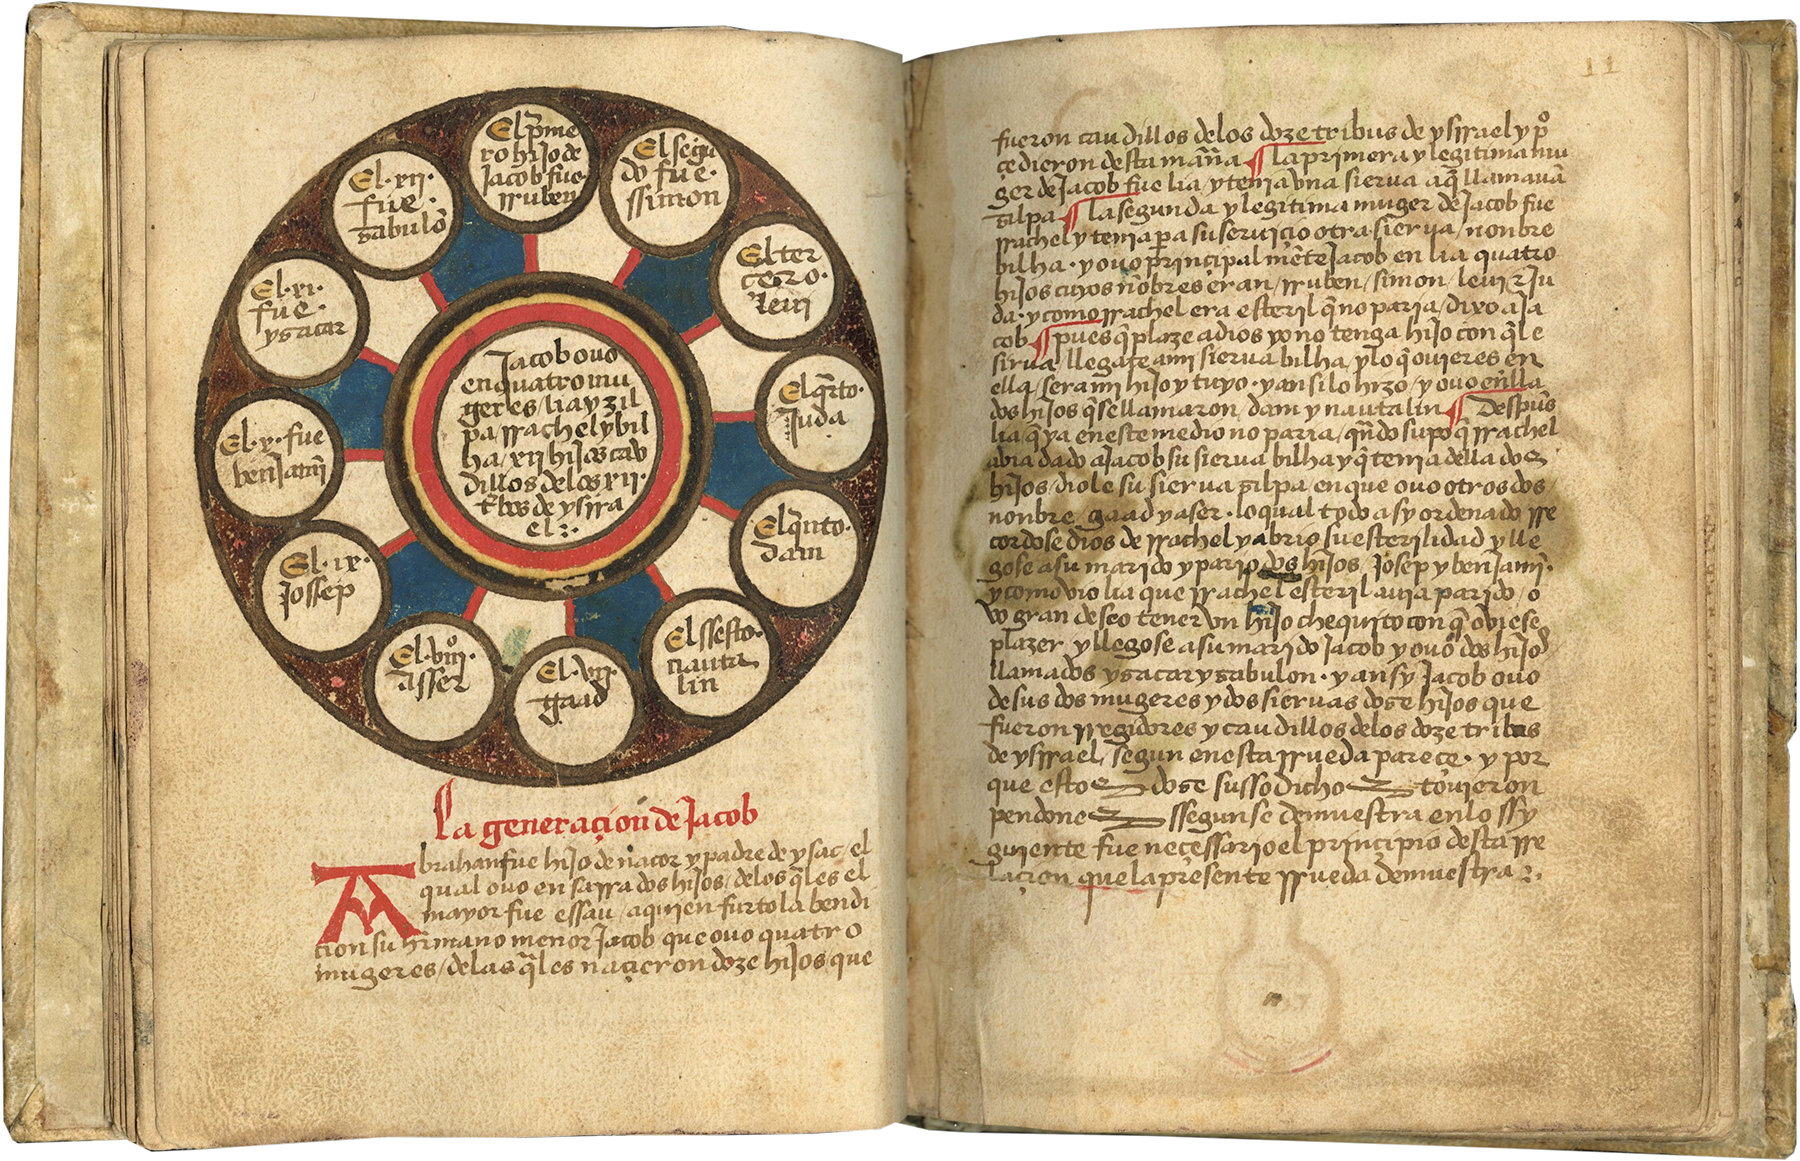 El p̃me
ro hijo de
Jacob fue
rruben
El segũ
do fue
ssimon
El ter
cero
leui
El q̃rto
Juda
El q̃nto
dam
El ssesto
nauta
lin
El vii
gaad
El viiiº
asser
El ix
Jossep
El x fue
benJamĩ
El xi
fue
ysacar
El xii
fue
zabulõ
Jacob ouo
en quatro mu
geres / lia y zil
pa / rrachel y bil
ha / xii hijos cab
dillos de los xii
t̃bos de ysrra
el
La generaçion de Jacob
Abrahan fue hijo de nacor y padre de ysac / el
qual ouo en sarra dos hijos / de los q̃les el
mayor fue essau / a quien furto la bendi
cion su hermano menor Jacob que ouo quatro
mugeres / de las q̃les naçieron doze hijos que
11
fueron caudillos de los doze tribus de ysrrael y p̃
çedieron desta mañã ¶ la primera y legitima mu
ger de Jacob fue lia / y tenia vna sierua a q̃ llamauã
zilpa ¶ la segunda y legitima muger de Jacob fue
rrachel y tenia pa su seruiçio otra sierua / nonbre
bilha · y ouo principal mẽte Jacob en lia quatro
hijos cuyos nõbres eran / rruben / simon / leui / z Ju
da · y como rrachel era esteril q̃ no paria / dixo a Ja
cob ¶ pues q̃ plaze a dios yo no tenga hijo con q̃ le
sirua / llegate a mi sierua bilha / y lo q̃ ouieres en
ella sera mi hijo y tuyo · y ansi lo hizo / y ouo en lla
dos hijos q̃ se llamaron / dam y nautalin ¶ Despũs
lia q̃ ya en este medio no paria / qñdo supo q̃ rrachel
abia dado a Jacob su sierua bilha y q̃ tenia della dos
hijos / diole su sierua zilpa en que ouo otros dos /
nonbre gaad y aser · lo qual todo asy ordenado rre
cordose dios de rrachel y abrio su esterilidad y lle
gose a su marido y pario dos hijos / Josep y benJamĩ ·
y como vio lia que rrachel esteril auia parido / o
vo gran deseo tener vn hijo chequito con q̃ obiese
plazer y llegose a su marido Jacob y ouo dos hijos
llamados ysacar y zabulon · y ansy Jacob ouo
de sus dos mugeres y dos sieruas doze hijos que
fueron rregidores y caudillos de los doze tribus
de ysrrael / segun en esta rrueda parece · y por
que estos doze sussodichos touieron
pendones ssegun se demuestra en lo ssy
guiente fue necessario el prinçipio desta rre
laçion que la presente rrueda demuestra